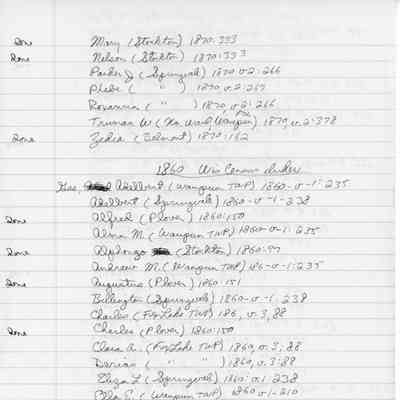 Done Mary (Stockton) 1870:333
Done Nelson (Stockton) 1870:333
Parker J (Springvale) 1870 v.2:266
Phebe ( " ) 1870 v.2:267
Roxanna ( " ) 1870, v.2:266
Truman W (No. Ward, Waupun) 1870, v.2:378
Done Zedia (Belmont) 1870:162
1860 Wis Census Index
Adelbert (Waupun TWP) 1860-v-1:235
Adelbert (Springvale) 1860-v-1-238
Done Alfred (Plover) 1860:150
Alma M. (Waupun TWP) 1860-v-1:235
Done Alphonzo (Stockton) 1860:97
Andrew M. (Waupun TWP) 186-v-1:235
Done Augustus (Plover) 1860:151
Billington (Springvale) 1860-v-1,238
Charles (Fox Lake TWP) 186, v.3,88
Done Charles (Plover) 1860:150
Clara A. (Fox Lake TWP) 1860, v.3:88
Darius ( " " ) 1860, v.3:88
Eliza L (Springvale) 1860:v.1:238
Ella E. (Waupun TWP) 1860 v-1-210